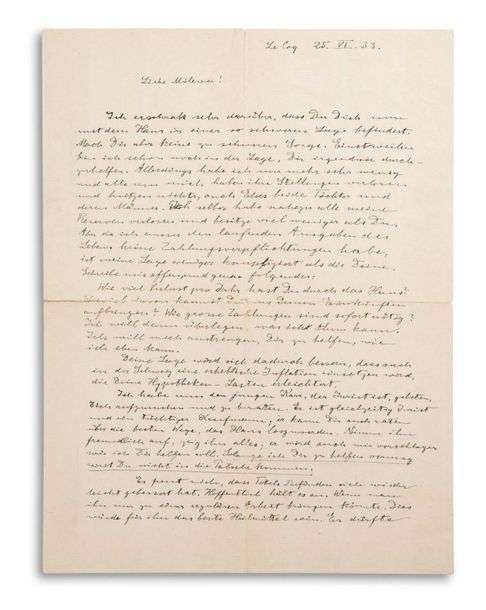 Le Coq 25. VI. 33.
Liebe Mileva!
Ich erschrak sehr darüber, dass Du Dich nun
mit dem Haus in einer so schweren Lage befindest.
Mach Dir aber keine zu schweren Sorgen. Einstweilen
bin ich schon noch in der Lage, Dir irgendwie durch-
zuhelfen. Allerdings habe ich nun mehr sehr wenig
und alles um mich haben ihre Stellungen verloren
und besitzen nichts, auch Elsas beide Töchter und
deren Männer. Ich selber habe nahezu all meine
verloren und besitze viel weniger als Du.
Aber da ich ausser den laufenden Ausgaben des
Lebens keine Zahlungsverpflichtungen habe,
ist meine Lage weniger kompliziert als die Deine.
Schreibe mir offen und genau folgendes:
Wie viel Verlust pro Jahr hast Du durch das Haus?
Wieviel davon kannst Du aus Deinen Einkünften
aufbringen? Wie grosse Zahlungen sind sofort nötig?
Ich will dann überlegen, was ich thun kann.
Ich will mich anstrengen, Dir zu helfen, wie
ich eben kann.
Deine Lage wird sich dadurch bessern, dass auch
in der Schweiz eine erhebliche Inflation einsetzen wird,
die Deine Hypotheken-Lasten erleichtert.
Ich habe nun den jungen Karr, der Jurist ist, gebeten,
Dich aufzusuchen und zu beraten. Er ist gleichzeitig Jurist
und ein tüchtiger Kaufmann, er kann Dir auch raten
über die besten Wege, das Haus loszuwerden. Nimm ihn
freundlich auf, zeig ihm alles, er wird auch mir vorschlagen
wie ich Dir helfen soll. Solange ich Dir zu helfen vermag
wirst Du nicht in die Patsche kommen.
Es freut mich, dass Tetels Befinden sich wieder
leicht gebessert hat. Hoffentlich hält es an. Wenn man
ihn nur zu einer regulären Arbeit bringen könnte. Das
würde für ihn das beste Heilmittel sein. Er dürfte